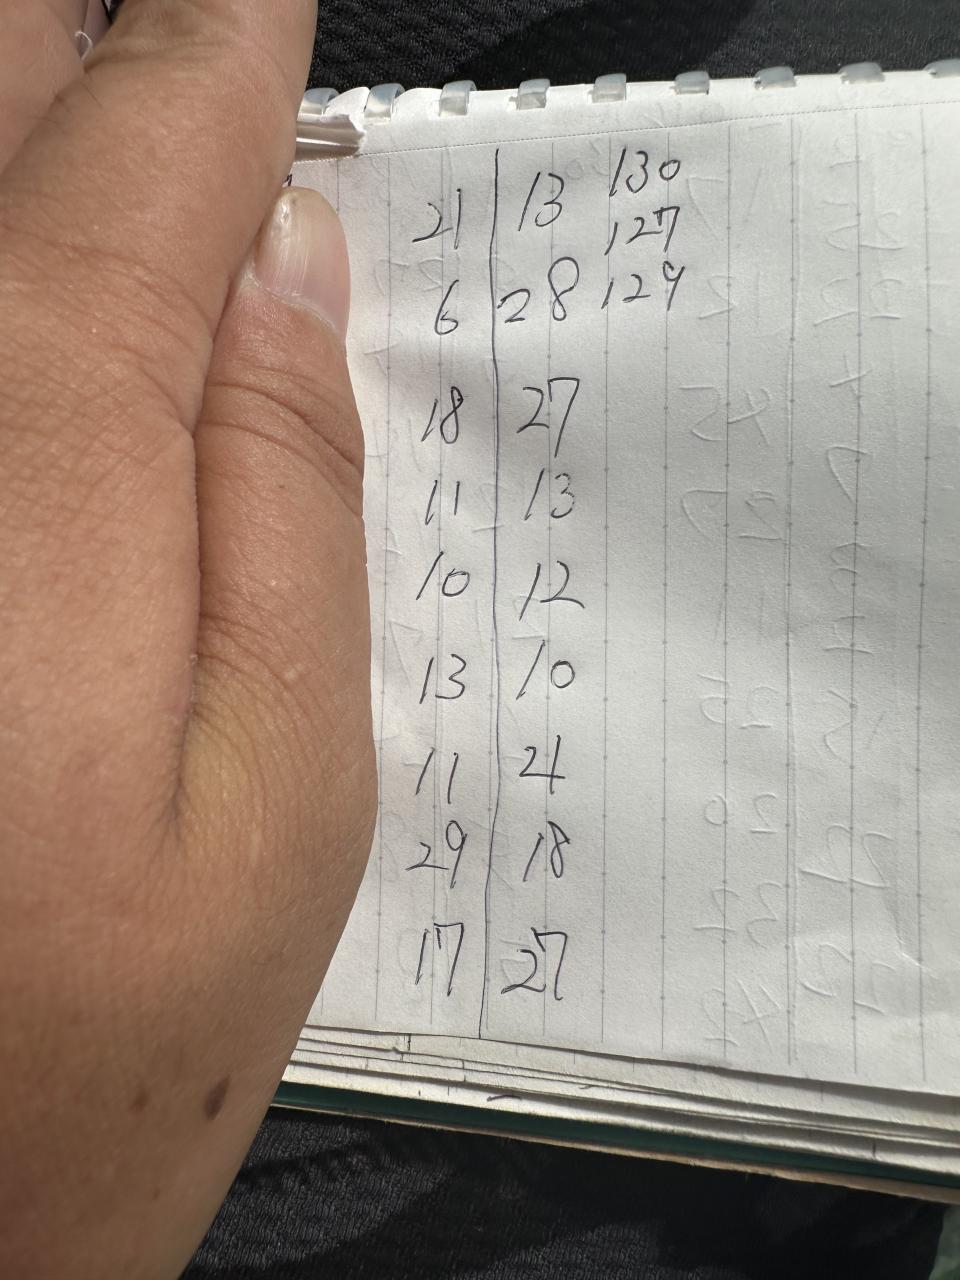 21 13 130
127
6 28 129
18 27
11 13
10 12
13 10
11 21
29 18
17 27